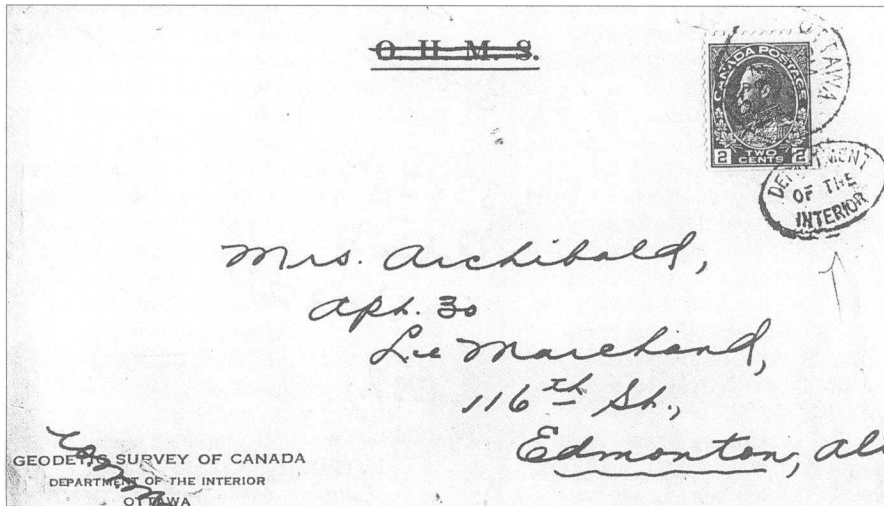 O. H. M. S.
OTTAWA
CANADA POSTAGE
2 TWO CENTS 2
DEPARTMENT
OF THE
INTERIOR
Mrs. Archibald,
Apt. 30
Le Marchand,
116th St.,
Edmonton, Al
GEODETIC SURVEY OF CANADA
DEPARTMENT OF THE INTERIOR
OTTAWA